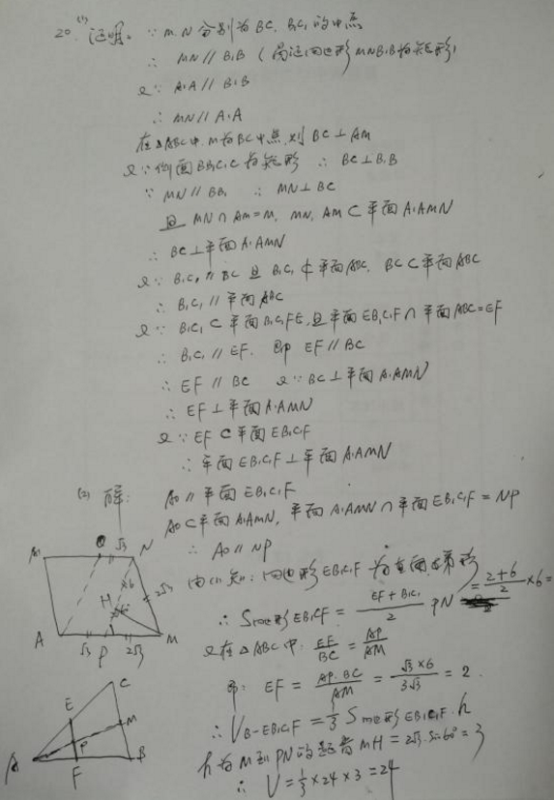 20. (1) 证明。∵ M.N 分别为 BC, B₁C₁ 的中点
∴ MN // B₁B
又∵ A₁A // B₁B
∴ MN // A₁A
在△ABC中. M为BC中点,则 BC⊥AM
又∵侧面BB₁C₁C为矩形 ∴ BC⊥B₁B
∵ MN // BB₁ ∴ MN⊥BC
且 MN∩AM=M. MN, AM⊂平面A₁AMN
∴ BC⊥平面A₁AMN
又∵ B₁C₁ // BC 且 B₁C₁⊄平面ABC. BC⊂平面ABC
∴ B₁C₁ // 平面ABC
又∵ B₁C₁⊂平面B₁C₁FE,且平面EB₁C₁F∩平面ABC=EF
∴ B₁C₁ // EF. 即 EF // BC
∴ EF // BC 又∵ BC⊥平面A₁AMN
∴ EF⊥平面A₁AMN
又∵ EF⊂平面EB₁C₁F
∴ 平面EB₁C₁F⊥平面A₁AMN
(2) 解: AO // 平面EB₁C₁F
AO⊂平面A₁AMN, 平面A₁AMN∩平面EB₁C₁F = NP
∴ AO // NP
由(1)知: 四边形EB₁C₁F为
∴ S四边形EB₁C₁F = (EF+B₁C₁)/2 PN = (2+6)/2 ×6=
又在△ABC中. EF/BC = AP/AM
即: EF = AP·BC/AM = √3×6/3√3 = 2
∴ V B-EB₁C₁F = 1/3 S四边形EB₁C₁F · h
h为M到PN的距离 MH = 2√3·sin60° = 3
∴ V = 1/3 ×24×3 = 24
A₁ O √3 N
H 6 60° 2√3
A √3 P 2√3 M
C
E
M
P
A F B